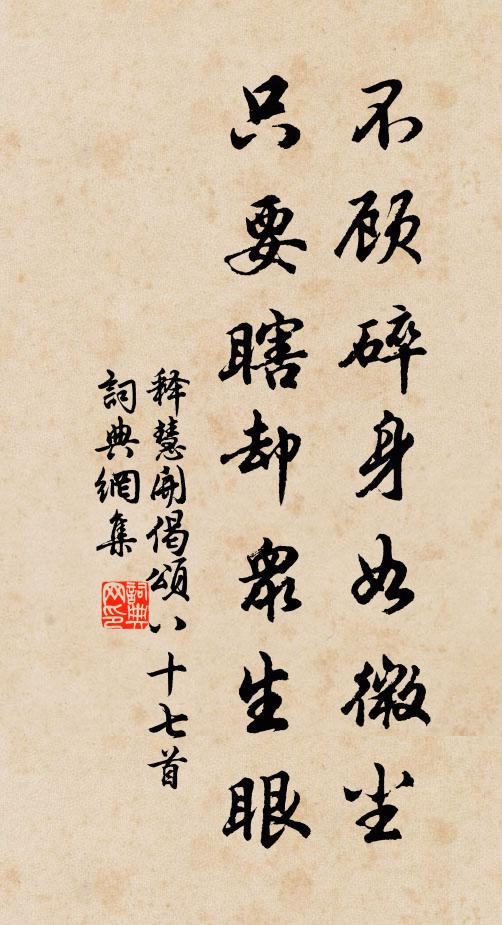 不顾碎身如微尘
只要瞎却眾生眼
释慧開偈頌八十七首
詞典網集
詞典网印